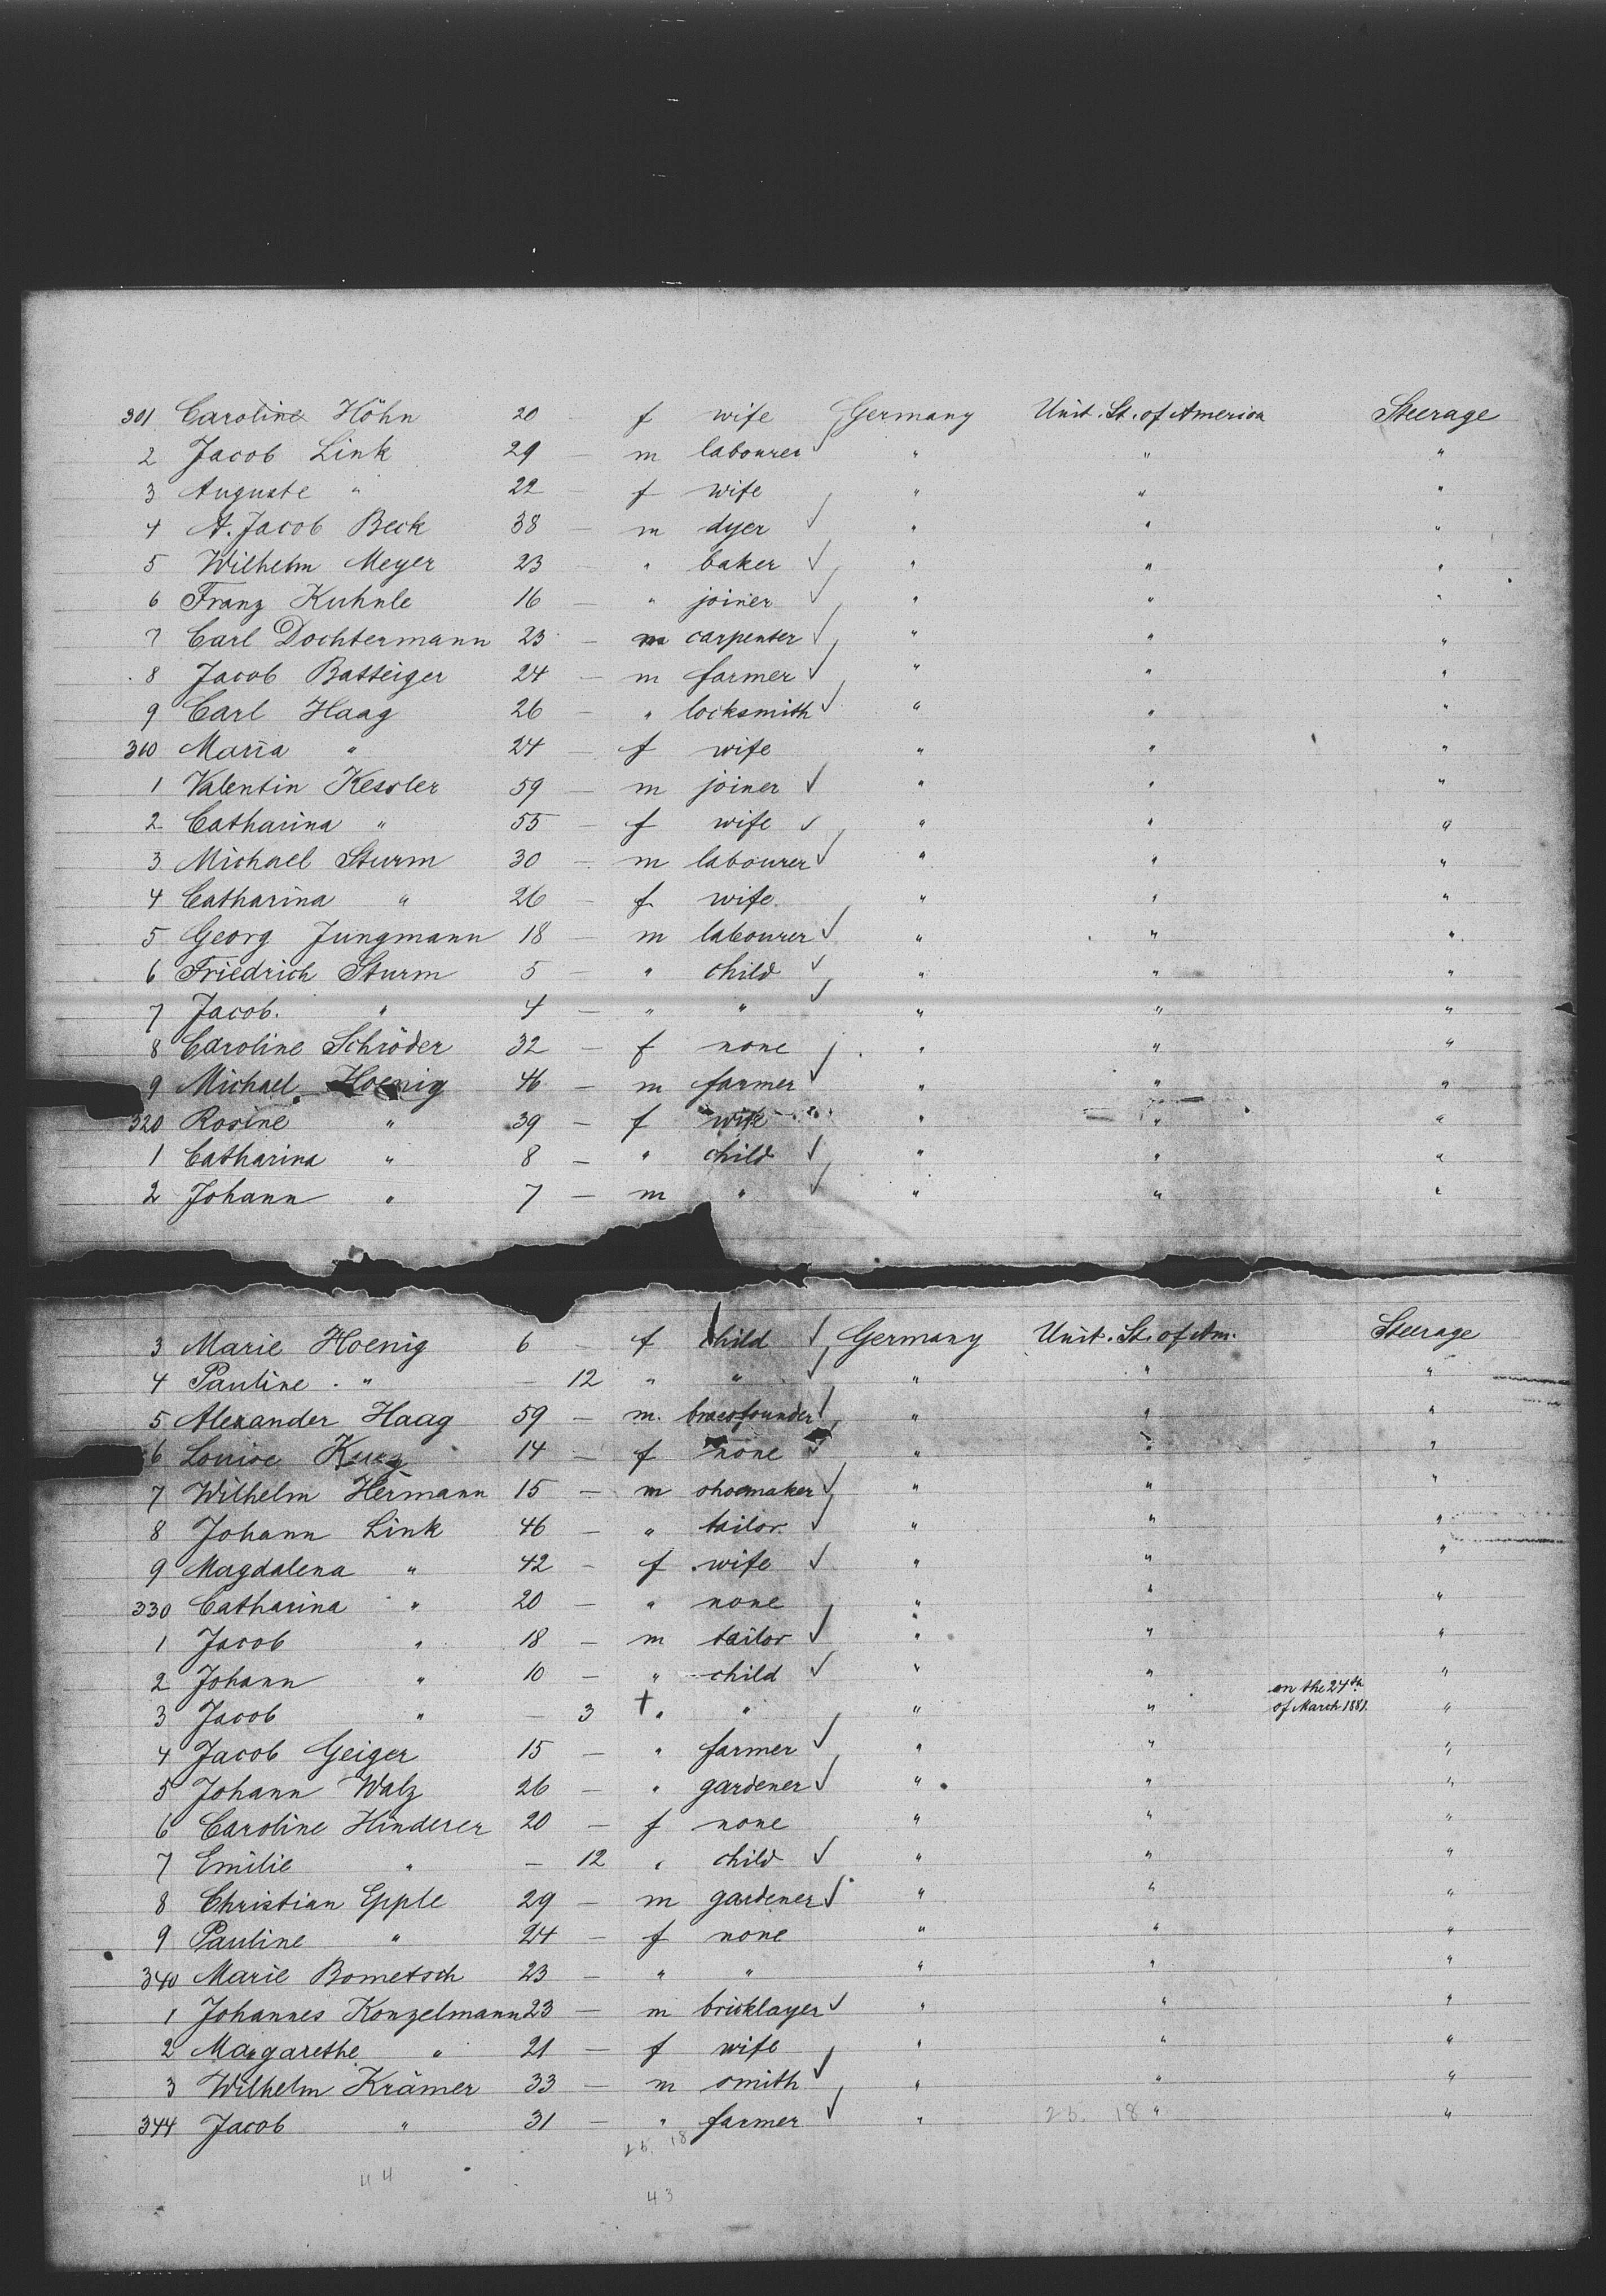 301 Caroline Höhn 20 - f wife Germany Unit. St. of America Steerage
2 Jacob Link 29 - m labourer ✓ " " "
3 Auguste " 22 - f wife " " "
4 A. Jacob Beck 38 - m dyer ✓ " " "
5 Wilhelm Meyer 23 - " baker ✓ " " "
6 Franz Kuhnle 16 - " joiner ✓ " " "
7 Carl Dochtermann 23 - m carpenter ✓ " " "
8 Jacob Batteiger 24 - m farmer ✓ " " "
9 Carl Haag 26 - " locksmith ✓ " " "
310 Maria " 24 - f wife " " "
1 Valentin Kessler 59 - m joiner ✓ " " "
2 Catharina " 55 - f wife ✓ " " "
3 Michael Sturm 30 - m labourer ✓ " " "
4 Catharina " 26 - f wife " " "
5 Georg Jungmann 18 - m labourer ✓ " " "
6 Friedrich Sturm 5 - " child ✓ " " "
7 Jacob " 4 - " " ✓ " " "
8 Caroline Schröder 32 - f none " " "
9 Michael Hoenig 46 - m farmer ✓ " " "
320 Rosine " 39 - f wife " " "
1 Catharina " 8 - " child ✓ " " "
2 Johann " 7 - m " ✓ " " "
3 Marie Hoenig 6 - f child ✓ Germany Unit. St. of Am. Steerage
4 Pauline " - 12 " " ✓ " " "
5 Alexander Haag 59 - m. brassfounder ✓ " " "
6 Louise 14 - f none ✓ " " "
7 Wilhelm Hermann 15 - m shoemaker ✓ " " "
8 Johann Link 46 - " tailor ✓ " " "
9 Magdalena " 42 - f wife ✓ " " "
330 Catharina " 20 - " none " " "
1 Jacob " 18 - m tailor ✓ " " "
2 Johann " 10 - " child ✓ " " "
3 Jacob " - 3 † " " " " on the 24th of March 1881. "
4 Jacob Geiger 15 - " farmer ✓ " " "
5 Johann Walz 26 - " gardener ✓ " " "
6 Caroline Hinderer 20 - f none " " "
7 Emilie " - 12 " child ✓ " " "
8 Christian Epple 29 - m gardener ✓ " " "
9 Pauline " 24 - f none " " "
340 Marie Bometsch 23 - " " " " "
1 Johannes Konzelmann 23 - m bricklayer ✓ " " "
2 Margarethe " 21 - f wife " " "
3 Wilhelm Krämer 33 - m smith ✓ " " "
344 Jacob " 31 - " farmer ✓ " 25. 18 " "
26. 18
44
43